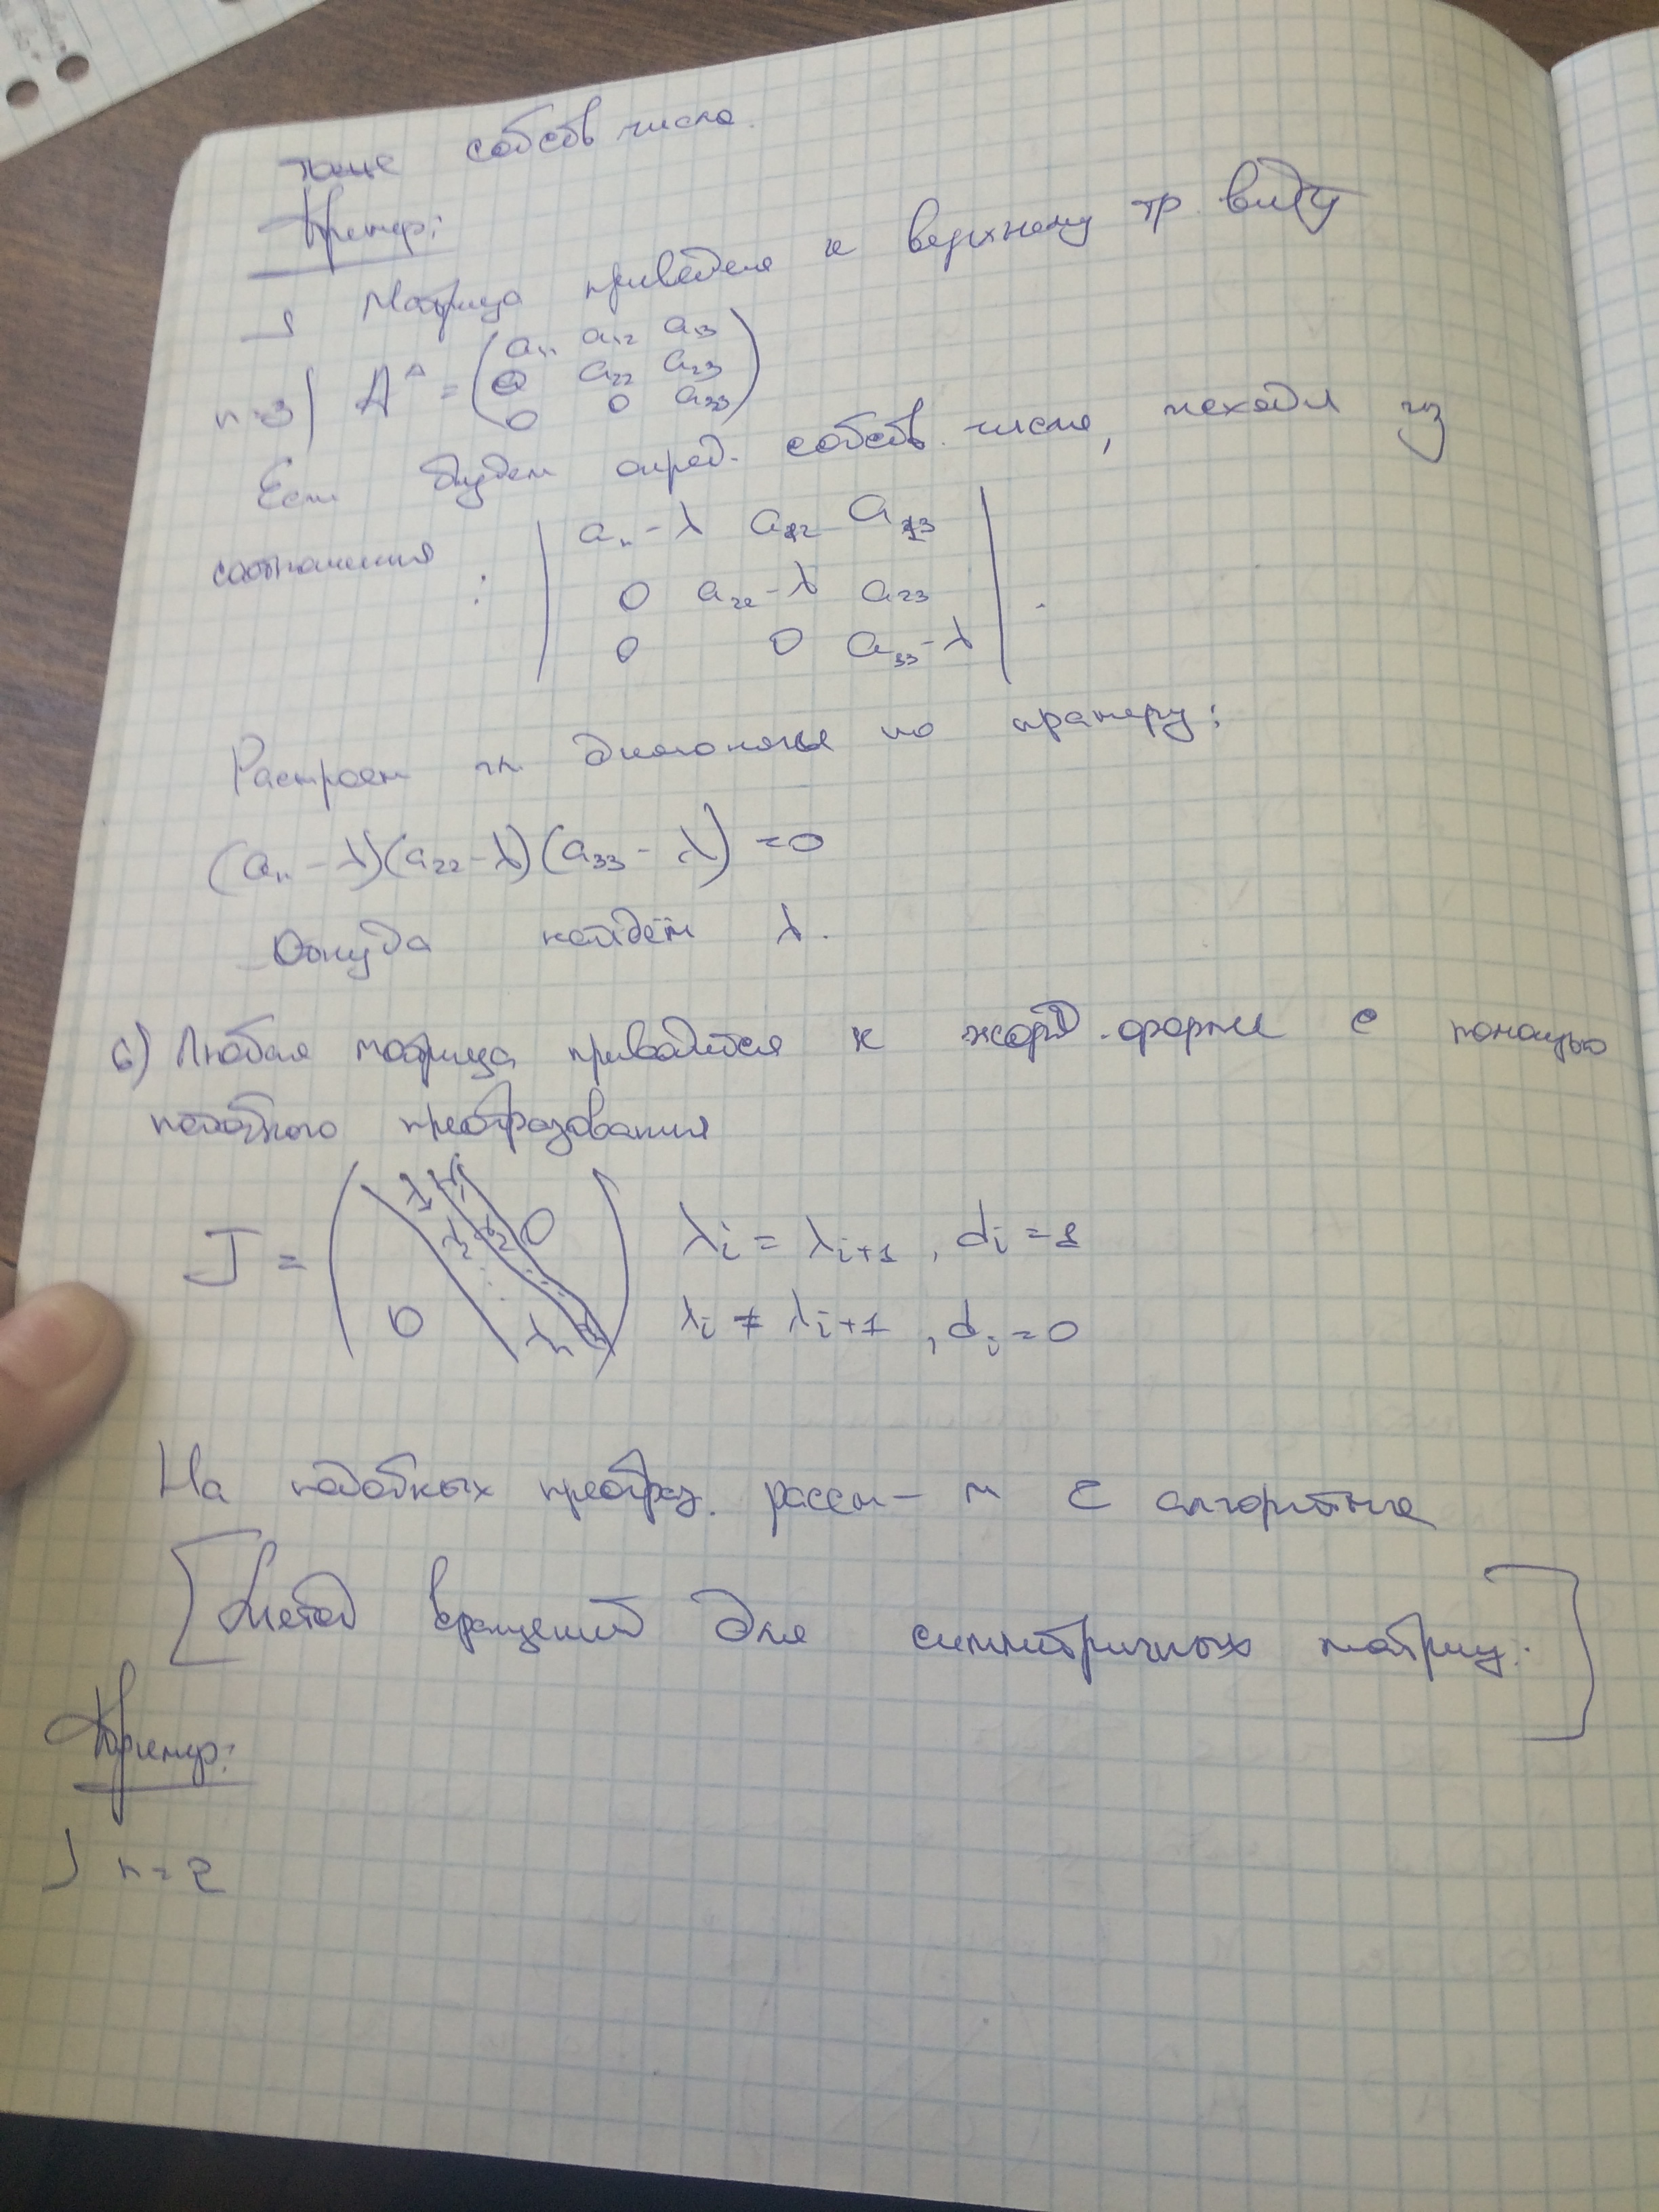 собств числа.
Пример:
Матрица приведена к верхнему тр. виду
n=3) A^Δ = (a₁₁ a₁₂ a₁₃
0 a₂₂ a₂₃
0 0 a₃₃)
Если будем опред. собств. числа, исходя из
соотношения : | a₁₁-λ a₁₂ a₁₃
0 a₂₂-λ a₂₃
0 0 a₃₃-λ | .
диагональ по
(a₁₁-λ)(a₂₂-λ)(a₃₃-λ)=0
Откуда найдём λ.
6) Любая матрица приводится к жорд. форме с помощью
подобного преобразования
J = ( λ₁ d₁ 0
λ₂ d₂
0 λn ) λi = λi+1 , di = 1
λi ≠ λi+1 , di = 0
На подобных преобраз. рассм-м
[Метод вращений для симметричных матриц.]
Пример:
n=2